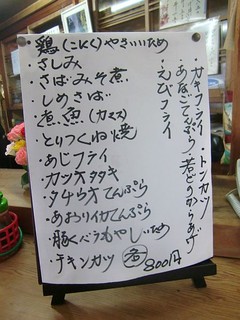 ・鶏(にんにく)やさいいため
・さしみ
・さばみそ煮
・しめさば
・煮魚(カマス)
・とりつくね焼
・あじフライ
・カツオタタキ
・タチウオてんぷら
・あおりイカてんぷら
・豚バラもやしいため
・チキンカツ
各800円
・カキフライ ・トンカツ
・あなごてんぷら・若どりからあげ
・えびフライ